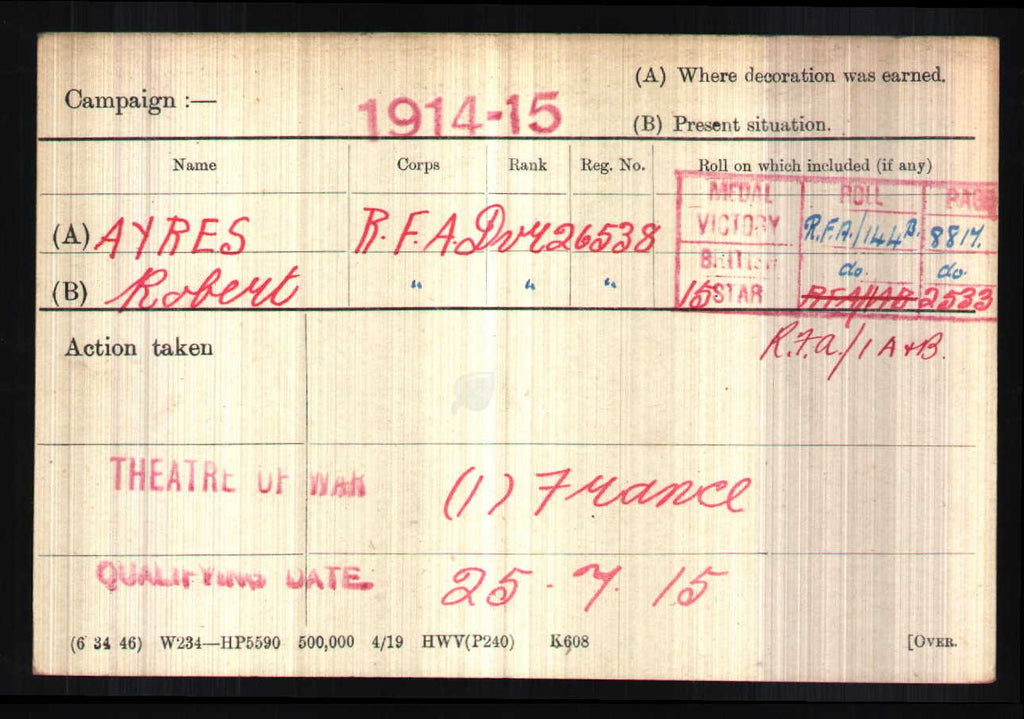 Campaign :— 1914-15 (A) Where decoration was earned.
(B) Present situation.
Name Corps Rank Reg. No. Roll on which included (if any)
MEDAL ROLL PAGE
(A) AYRES R.F.A. Dvr 26538 VICTORY R.F.A./144B. 8817.
BRITISH do. do.
(B) Robert " " " 15 STAR 2533
Action taken R.F.A./1A+B.
THEATRE OF WAR (1) France
QUALIFYING DATE. 25.7.15
(6 34 46) W234—HP5590 500,000 4/19 HWV(P240) K608 [OVER.